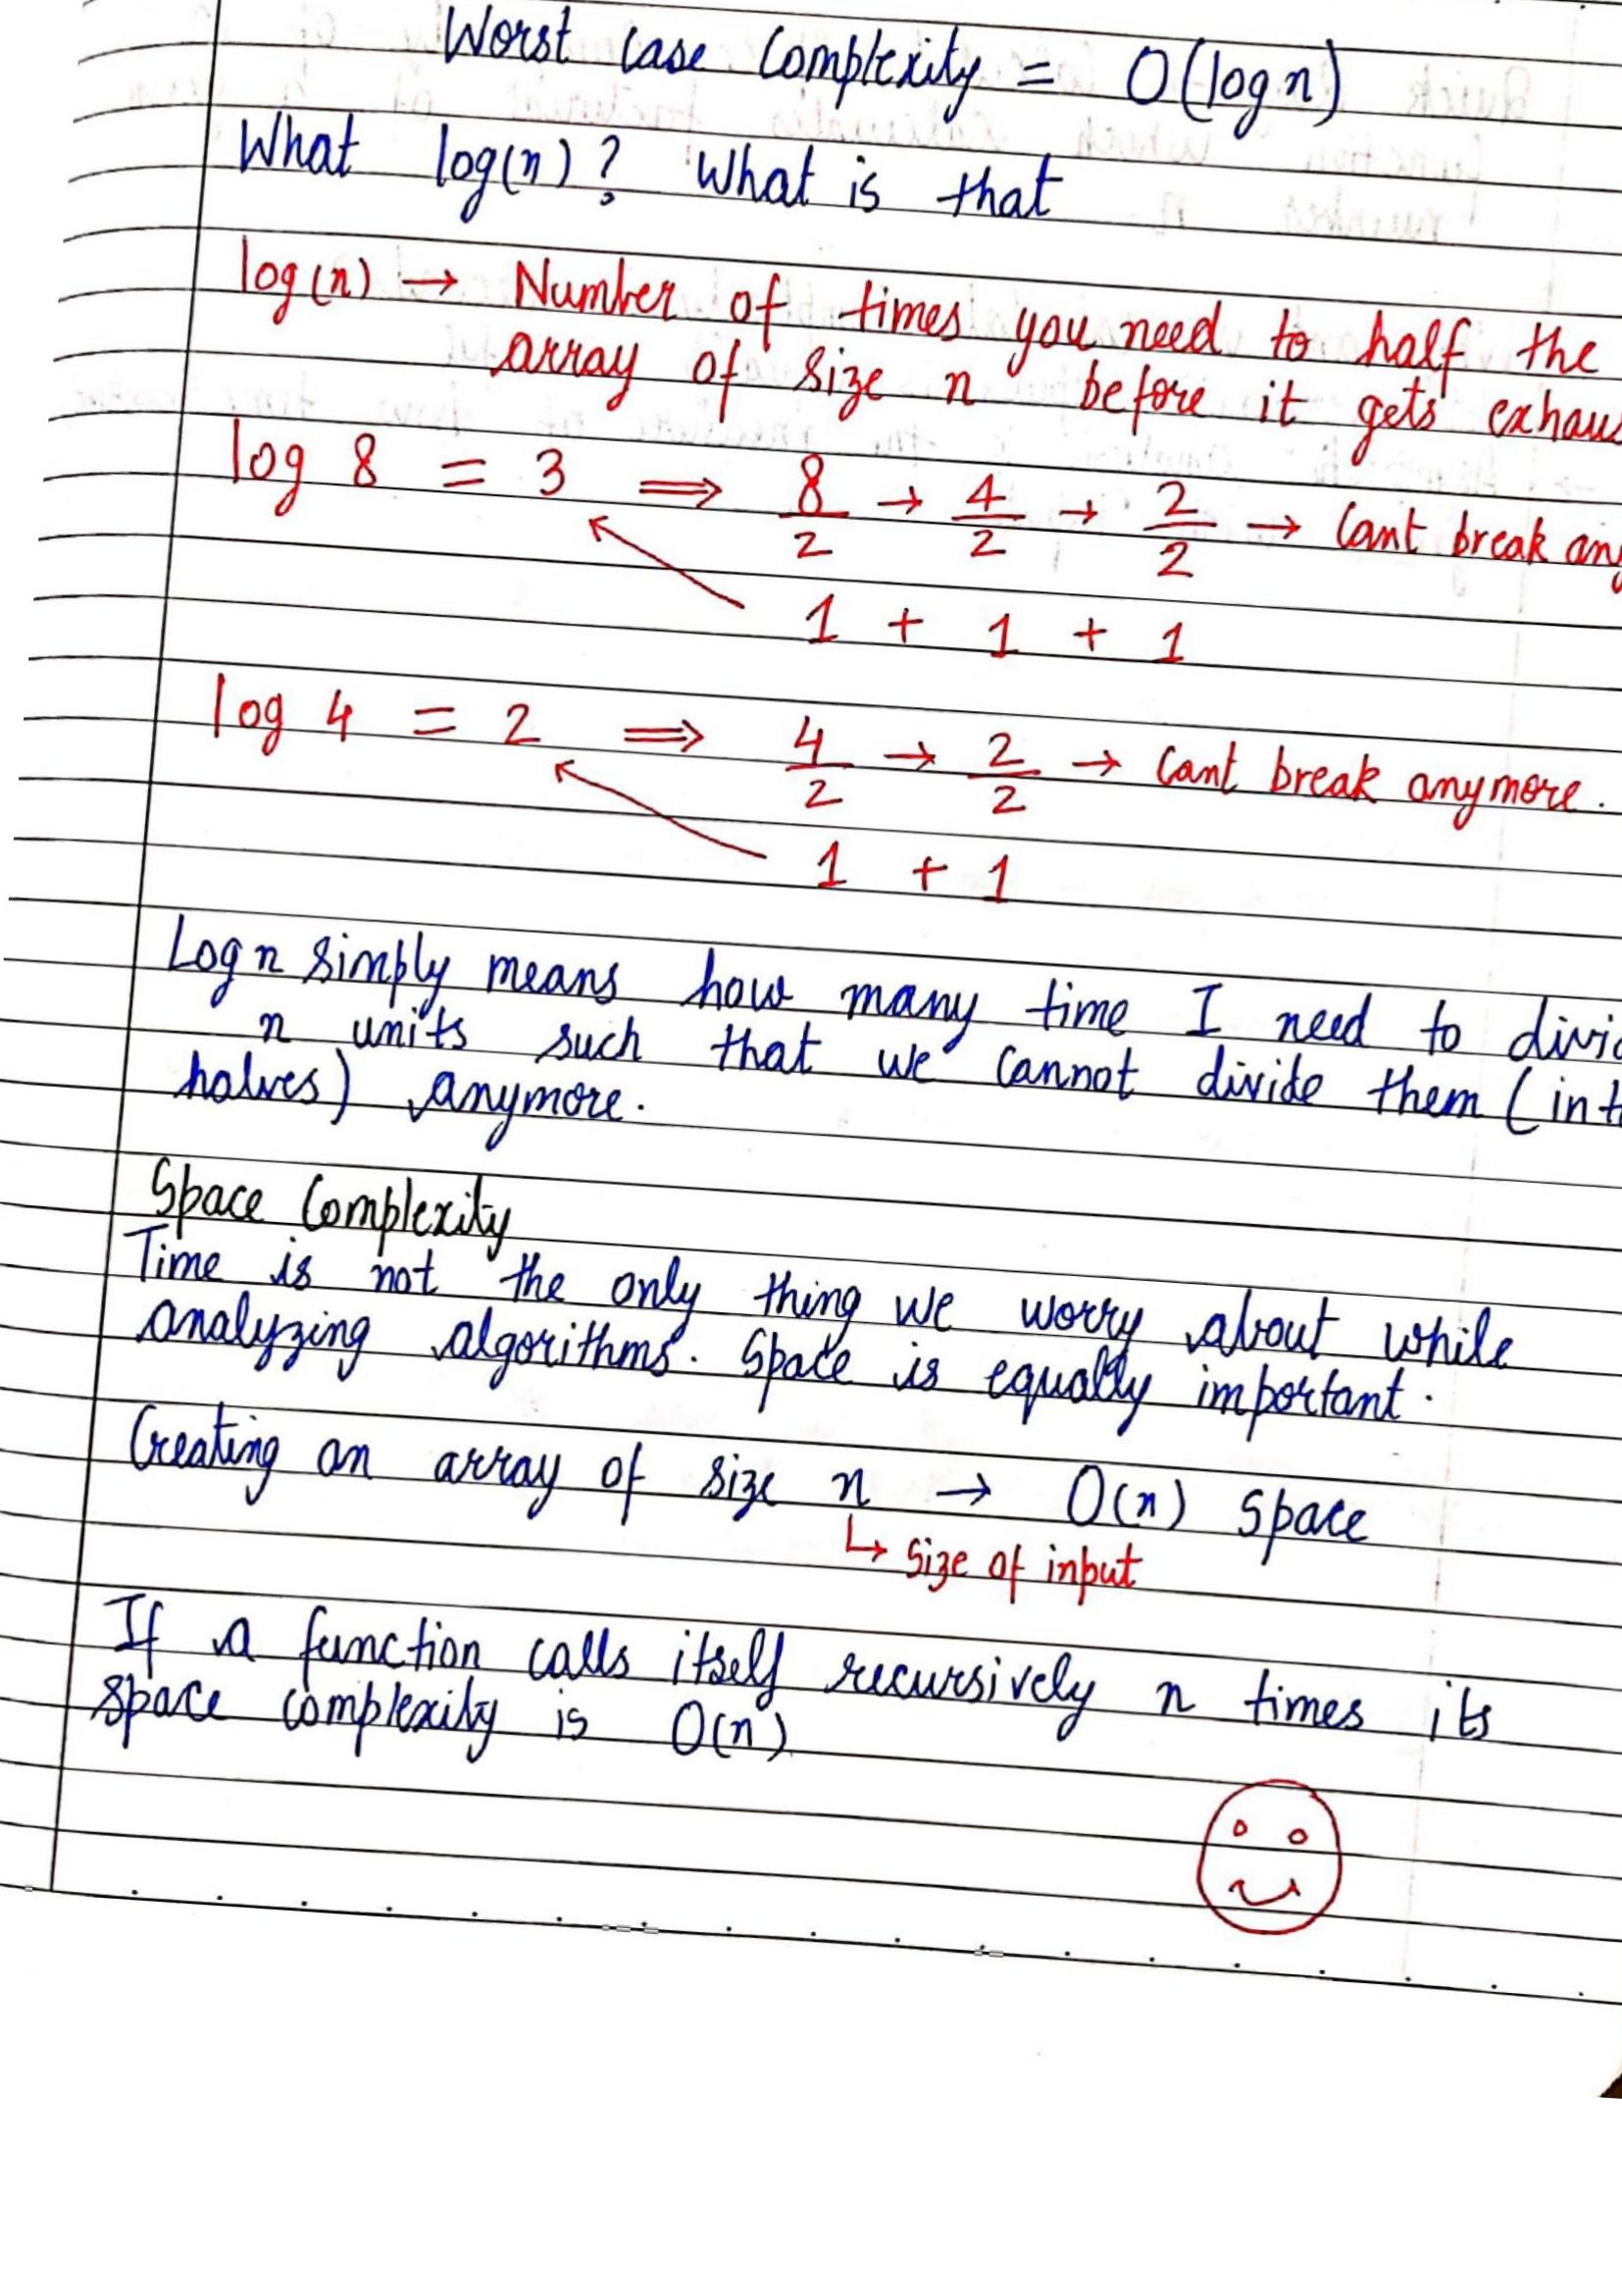 Worst case Complexity = O(log n)
What log(n)? What is that
log(n) → Number of times you need to half the
array of size n before it gets exhaus
log 8 = 3 ⟹ 8/2 → 4/2 → 2/2 → Cant break any
1 + 1 + 1
log 4 = 2 ⟹ 4/2 → 2/2 → Cant break anymore.
1 + 1
Log n simply means how many time I need to divid
n units such that we cannot divide them (int
halves) anymore.
Space Complexity
Time is not the only thing we worry about while
analyzing algorithms. Space is equally important.
Creating an array of size n → O(n) Space
↳ Size of input
If a function calls itself recursively n times its
space complexity is O(n)